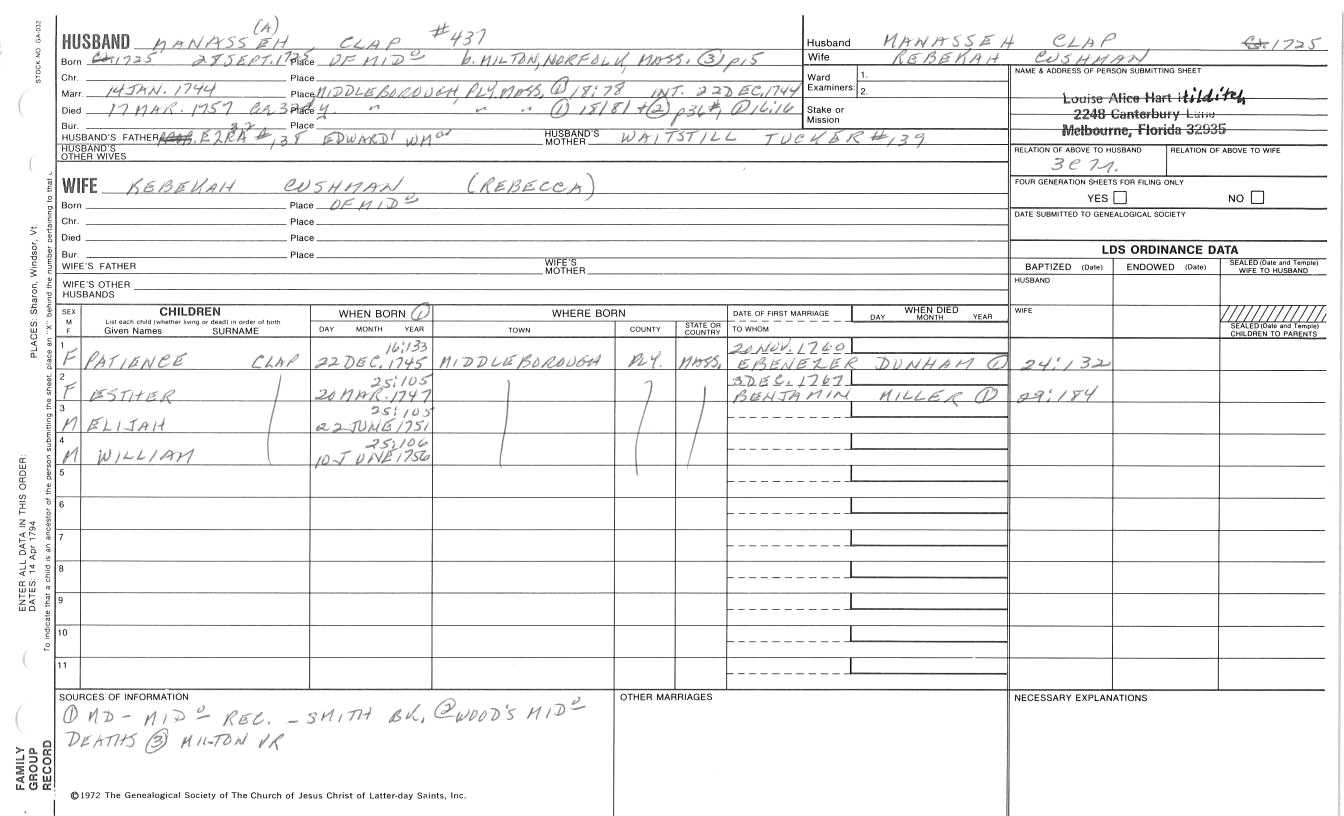 (A)
HUSBAND MANASSEH CLAP #437
Born Ca 1725 28 SEPT. 1725 Place OF MIDº b. MILTON, NORFOLK, MASS. ③ p. 5
Chr. Place
Marr. 14 JAN. 1744 Place MIDDLEBOROUGH, PLY. MASS, ① 18:78 INT. 22 DEC, 1744
Died 17 MAR. 1757 32 y Place " " " ① 15:181 + ② p 36 #, 16:16
Bur. Place
HUSBAND'S FATHER EZRA #138 EDWARD WM HUSBAND'S MOTHER WAITSTILL TUCKER #139
HUSBAND'S OTHER WIVES
Husband MANASSEH CLAP Ca 1725
Wife REBEKAH CUSHMAN
Ward Examiners: 1.
2.
Stake or Mission
NAME & ADDRESS OF PERSON SUBMITTING SHEET
Louise Alice Hart Hilditch
2248 Canterbury Lane
Melbourne, Florida 32935
RELATION OF ABOVE TO HUSBAND RELATION OF ABOVE TO WIFE
3C7R.
FOUR GENERATION SHEETS FOR FILING ONLY
YES NO
DATE SUBMITTED TO GENEALOGICAL SOCIETY
WIFE REBEKAH CUSHMAN (REBECCA)
Born Place OF MIDº
Chr. Place
Died Place
Bur. Place
WIFE'S FATHER WIFE'S MOTHER
WIFE'S OTHER HUSBANDS
LDS ORDINANCE DATA
BAPTIZED (Date) ENDOWED (Date) SEALED (Date and Temple) WIFE TO HUSBAND
HUSBAND
WIFE
SEALED (Date and Temple) CHILDREN TO PARENTS
SEX M F
CHILDREN
List each child (whether living or dead) in order of birth
Given Names SURNAME
WHEN BORN ①
DAY MONTH YEAR
WHERE BORN
TOWN COUNTY STATE OR COUNTRY
DATE OF FIRST MARRIAGE
TO WHOM
WHEN DIED
DAY MONTH YEAR
1 16:133 20 NOV. 1760
F PATIENCE CLAP 22 DEC. 1745 MIDDLEBOROUGH PLY. MASS, EBENEZER DUNHAM ① 24:132
2 25:105 3 DEC. 1767
F ESTHER 20 MAR. 1747 BENJAMIN MILLER ① 29:184
3 25:105
M ELIJAH 22 JUNE 1751
4 25:106
M WILLIAM 10 JUNE 1756
5
6
7
8
9
10
11
SOURCES OF INFORMATION
① MD - MIDº REC. - SMITH BK, ② WOOD'S MIDº
DEATHS ③ MILTON VR
OTHER MARRIAGES
NECESSARY EXPLANATIONS
©1972 The Genealogical Society of The Church of Jesus Christ of Latter-day Saints, Inc.
STOCK NO. GA-032
PLACES: Sharon, Windsor, Vt.
ENTER ALL DATA IN THIS ORDER:
DATES: 14 Apr 1794
To indicate that a child is an ancestor of the person submitting the sheet, place an "X" behind the number pertaining to that
FAMILY
GROUP
RECORD